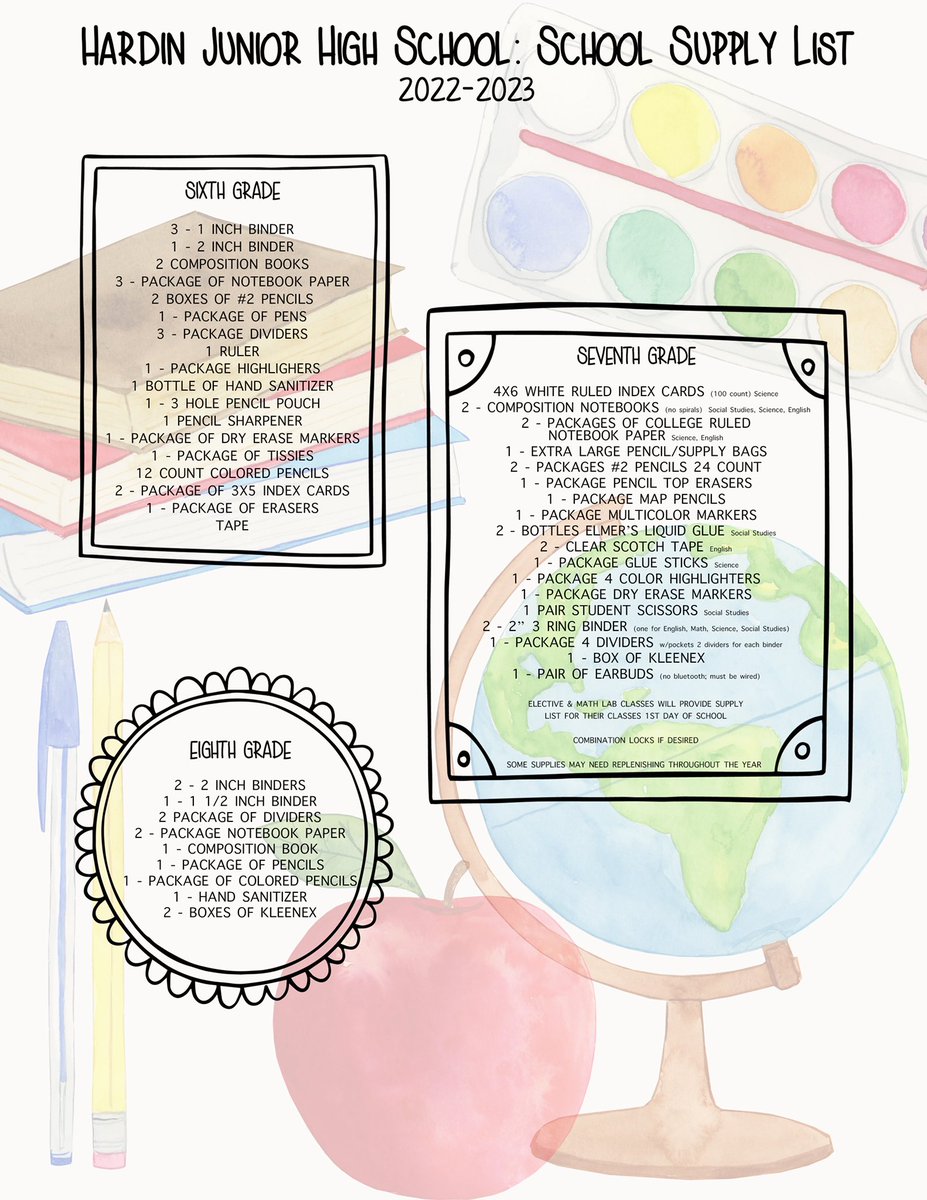 Hardin Junior High School: School Supply List
2022-2023
SIXTH GRADE
3 - 1 INCH BINDER
1 - 2 INCH BINDER
2 COMPOSITION BOOKS
3 - PACKAGE OF NOTEBOOK PAPER
2 BOXES OF #2 PENCILS
1 - PACKAGE OF PENS
3 - PACKAGE DIVIDERS
1 RULER
1 - PACKAGE HIGHLIGHERS
1 BOTTLE OF HAND SANITIZER
1 - 3 HOLE PENCIL POUCH
1 PENCIL SHARPENER
1 - PACKAGE OF DRY ERASE MARKERS
1 - PACKAGE OF TISSIES
12 COUNT COLORED PENCILS
2 - PACKAGE OF 3X5 INDEX CARDS
1 - PACKAGE OF ERASERS
TAPE
SEVENTH GRADE
4X6 WHITE RULED INDEX CARDS (100 count) Science
2 - COMPOSITION NOTEBOOKS (no spirals) Social Studies, Science, English
2 - PACKAGES OF COLLEGE RULED
NOTEBOOK PAPER Science, English
1 - EXTRA LARGE PENCIL/SUPPLY BAGS
2 - PACKAGES #2 PENCILS 24 COUNT
1 - PACKAGE PENCIL TOP ERASERS
1 - PACKAGE MAP PENCILS
1 - PACKAGE MULTICOLOR MARKERS
2 - BOTTLES ELMER'S LIQUID GLUE Social Studies
2 - CLEAR SCOTCH TAPE English
1 - PACKAGE GLUE STICKS Science
1 - PACKAGE 4 COLOR HIGHLIGHTERS
1 - PACKAGE DRY ERASE MARKERS
1 PAIR STUDENT SCISSORS Social Studies
2 - 2” 3 RING BINDER (one for English, Math, Science, Social Studies)
1 - PACKAGE 4 DIVIDERS w/pockets 2 dividers for each binder
1 - BOX OF KLEENEX
1 - PAIR OF EARBUDS (no bluetooth; must be wired)
ELECTIVE & MATH LAB CLASSES WILL PROVIDE SUPPLY
LIST FOR THEIR CLASSES 1ST DAY OF SCHOOL
COMBINATION LOCKS IF DESIRED
SOME SUPPLIES MAY NEED REPLENISHING THROUGHOUT THE YEAR
EIGHTH GRADE
2 - 2 INCH BINDERS
1 - 1 1/2 INCH BINDER
2 PACKAGE OF DIVIDERS
2 - PACKAGE NOTEBOOK PAPER
1 - COMPOSITION BOOK
1 - PACKAGE OF PENCILS
1 - PACKAGE OF COLORED PENCILS
1 - HAND SANITIZER
2 - BOXES OF KLEENEX